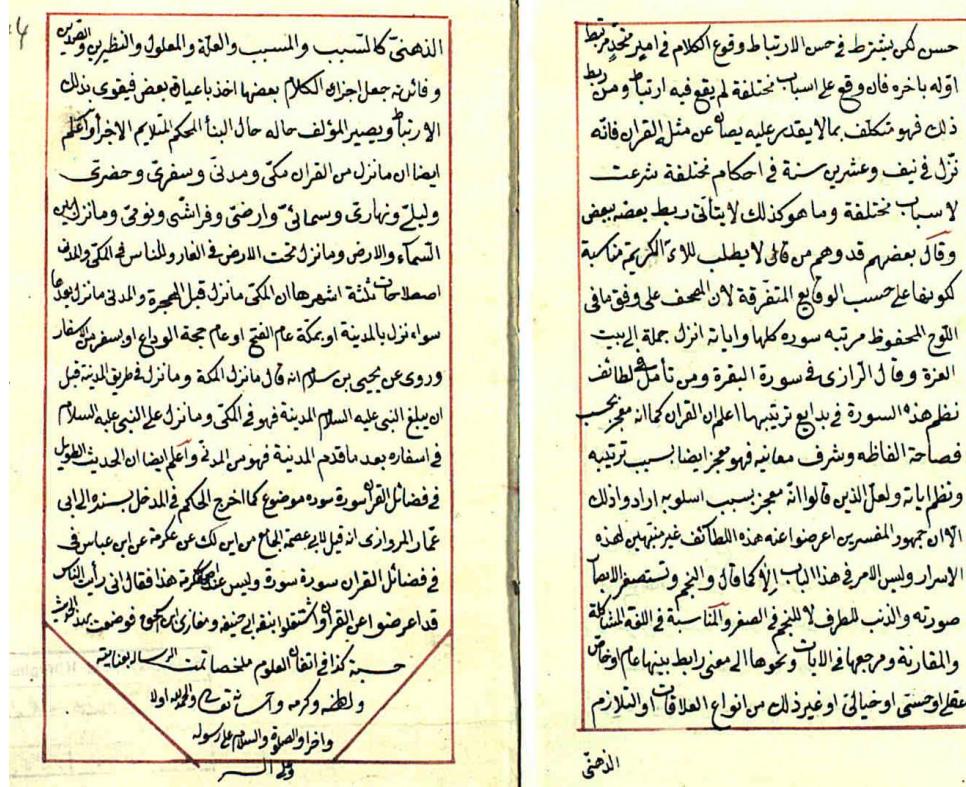 حسن لكن يشترط في حسن الارتباط وقوع الكلام في امر متحد مرتبط
اوله باخره فان وقع على اسباب مختلفة لم يقع فيه ارتباط ومن ربط
ذلك فهو متكلف بما لا يقدر عليه يصان عن مثل القران فانه
نزل في نيف وعشرين سنة في احكام مختلفة شرعت
لاسباب مختلفة وما هو كذلك لا يتأتى ربط بعضه ببعض
وقال بعضهم قد وهم من قال لا يطلب للآي الكريمة مناسبة
لكونها على حسب الوقايع المتفرقة لان المصحف على وفق ما في
اللوح المحفوظ مرتبه سوره كلها واياته انزل جملة الى بيت
العزة وقال الرازى في سورة البقرة ومن تأمل في لطائف
نظم هذه السورة في بدايع ترتيبها اعلم ان القران كما انه معجز بحسب
فصاحة الفاظه وشرف معانيه فهو معجز ايضا بسبب ترتيبه
ونظم اياته ولعل الذين قالوا انه معجز بسبب اسلوبه ارادوا ذلك
الا ان جمهور المفسرين اعرضوا عنه هذه اللطائف غير منتبهين لهذه
الاسرار وليس الامر في هذا الباب الا كما قال والنجم وتستصغر الابصار
صورته والذنب للطرف لا للنجم في الصغر والمناسبة في اللغة المشاكلة
والمقارنة ومرجعها في الايات ونحوها الى معنى رابط بينها عام او خاص
عقلي او حسى او خيالى او غير ذلك من انواع العلاقات او التلازم
الذهنى
الذهنى كالسبب والمسبب والعلة والمعلول والنظيرين والضدين
وفائدته جعل اجزاء الكلام بعضها اخذ باعناق بعض فيقوى بذلك
الارتباط ويصير المؤلف حاله حال البنأ المحكم المتلايم الاجزأ واعلم
ايضا ان ما نزل من القران مكى ومدنى وسفرى وحضرى
وليلى ونهارى وسمائى وارضى وفراشى ونومى وما نزل بين
السمآء والارض وما نزل تحت الارض في الغار وللناس في المكى والمدنى
اصطلاحات ثلثة اشهرها ان المكى ما نزل قبل الهجرة والمدنى ما نزل بعدها
سواء نزل بالمدينة او بمكة عام الفتح او عام حجة الوداع او بسفر من الاسفار
وروى عن يحيى بن سلام انه قال ما نزل المكة وما نزل في طريق المدينة قبل
ان يبلغ النبى عليه السلام المدينة فهو في المكى وما نزل على النبى عليه السلام
في اسفاره بعد ما قدم المدينة فهو من المدنى واعلم ايضا ان الحديث الطويل
في فضائل القرآن سورة سورة موضوع كما اخرج الحاكم في المدخل بسنده الى ابى
عمار المروازى انه قيل لابى عصمة الجامع من اين لك عن عكرمة عن ابن عباس في
في فضائل القران سورة سورة وليس عند اصحاب عكرمة هذا فقال انى رأيت الناس
قد اعرضوا عن القرآن واشتغلوا بفقه ابى حنيفة ومغازى ابن اسحق فوضعت هذا الحديث
حسبة كذا في اتقان العلوم ملخصا تمت الرسالة بعنايته
ولطفه وكرمه والحمد لله اولا
واخرا والصلوة والسلام على رسوله
وعلى اله